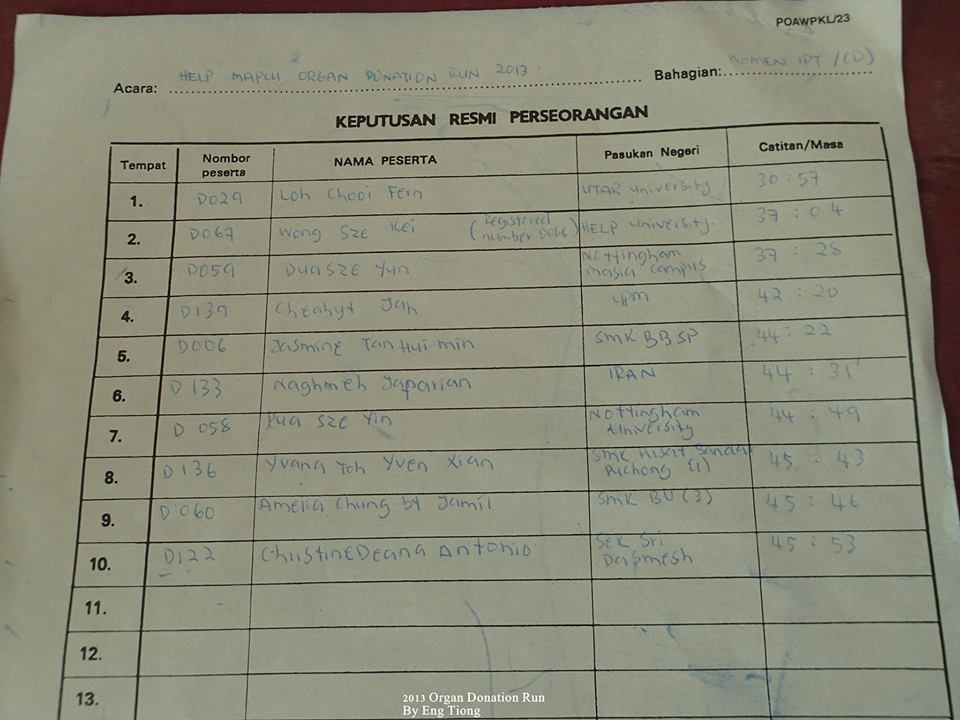 POAWPKL/23
Acara: HELP MAPCU ORGAN DONATION RUN 2013 Bahagian: WOMEN IPT / (D)
KEPUTUSAN RESMI PERSEORANGAN
Tempat Nombor peserta NAMA PESERTA Pasukan Negeri Catitan/Masa
1. D029 Loh Chooi Fern UTAR University 30:57
2. D067 Wong Sze Kei (Registered number D066) HELP University. 37:04
3. D059 Dua Sze Yun Nottingham Masia Campus 37:28
4. D139 Cheahyt Jah UPM 42:20
5. D006 Jasmine Tan Hui min SMK BBSP 44:22
6. D133 Naghmeh Japarian IRAN 44:31
7. D058 Pua Sze Yin Nottingham University 44:49
8. D136 Yvana Toh Yven Xian SMK Puchong (1) 45:43
9. D060 Amelia Chung bt Jamil SMK BU (3) 45:46
10. D122 Christine Deana Antonio Sek Sri Dasmesh 45:53
11.
12.
13.
2013 Organ Donation Run
By Eng Tiong